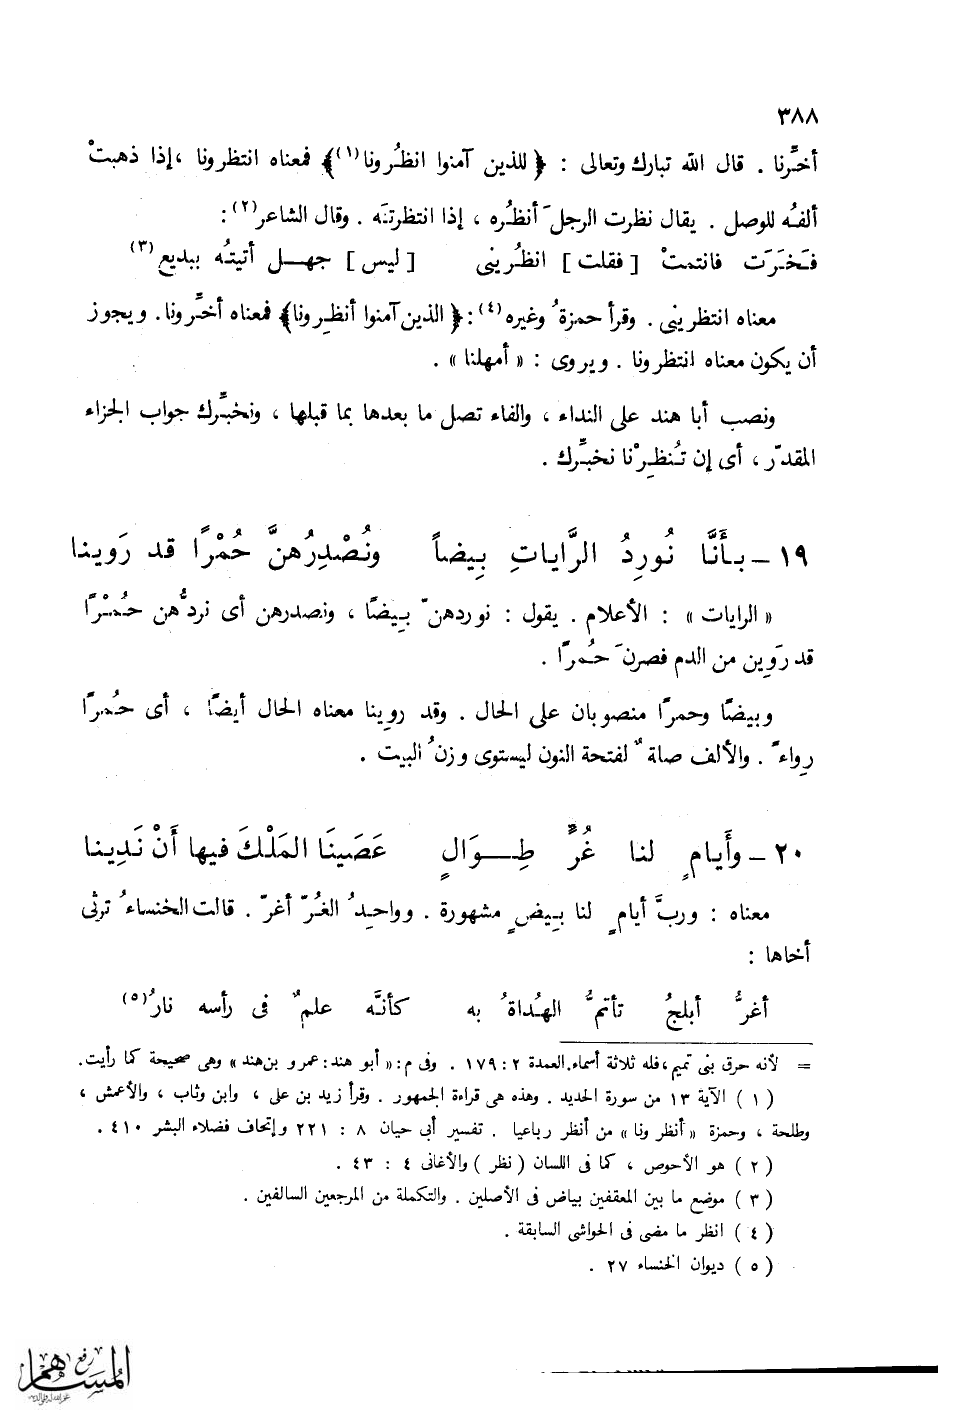 ٣٨٨
أخِّرنا . قال الله تبارك وتعالى : ﴿ للذين آمنوا انظُرونا(١)﴾ فمعناه انتظرونا ،إذا ذهبتْ
ألفُه للوصل . يقال نظرت الرجلَ أنظُره ، إذا انتظرتَه . وقال الشاعر(٢):
فَخَرَت فانتمتْ [ فقلت ] انظُرينى [ ليس ] جهـل أتيتُه ببديع(٣)
معناه انتظرينى . وقرأ حمزةُ وغيره(٤):﴿ الذين آمنوا أنظِرونا﴾ فمعناه أخِّرونا. ويجوز
أن يكون معناه انتظرونا . ويروى : « أمهلنا » .
ونصب أبا هند على النداء ، والفاء تصل ما بعدها بما قبلها ، ونخبِّرك جواب الجزاء
المقدّر ، أى إن تُنظِرْنا نخبِّرك .
١٩ – بـأَنَّا نُورِدُ الرَّاياتِ بِيضاً ونُصْدِرُهنَّ حُمْرًا قد رَوِينا
« الرايات » : الأعلام . يقول : نوردهنّ بِيضًا ، ونصدرهن أى نردُّهن حُمْرًا
قد رَوِين من الدم فصرنَ حُمرًا .
وبيضًا وحمرًا منصوبان على الحال . وقد روينا معناه الحال أيضًا ، أى حُمرًا
رِواءً . والألف صلةٌ لفتحة النون ليستوى وزنُ البيت .
٢٠ – وأَيامٍ لنا غُرٍّ طِـوَالٍ عَصَينَا المَلْكَ فيها أَنْ نَدِينا
معناه : وربَّ أيامٍ لنا بِيضٍ مشهورة . وواحِدُ الغُرّ أغرّ . قالت الخنساءُ ترثى
أخاها :
أغرُّ أبلجُ تأتمُّ الهُداةُ به كأنَّه علمٌ فى رأسه نارُ(٥)
= لأنه حرق بنى تميم ، فله ثلاثة أسماء. العمدة ٢ : ١٧٩ . وفى م : « أبو هند : عمرو بن هند » وهى صحيحة كما رأيت.
( ١ ) الآية ١٣ من سورة الحديد . وهذه هى قراءة الجمهور . وقرأ زيد بن على ، وابن وثاب ، والأعمش ،
وطلحة ، وحمزة « أنظرونا » من أنظر رباعيا . تفسير أبى حيان ٨ : ٢٢١ وإتحاف فضلاء البشر ٤١٠ .
( ٢ ) هو الأحوص ، كما فى اللسان ( نظر ) والأغانى ٤ : ٤٣ .
( ٣ ) موضع ما بين المعقفين بياض فى الأصلين . والتكملة من المرجعين السالفين .
( ٤ ) انظر ما مضى فى الحواشى السابقة .
( ٥ ) ديوان الخنساء ٢٧ .
رفع
المساهم